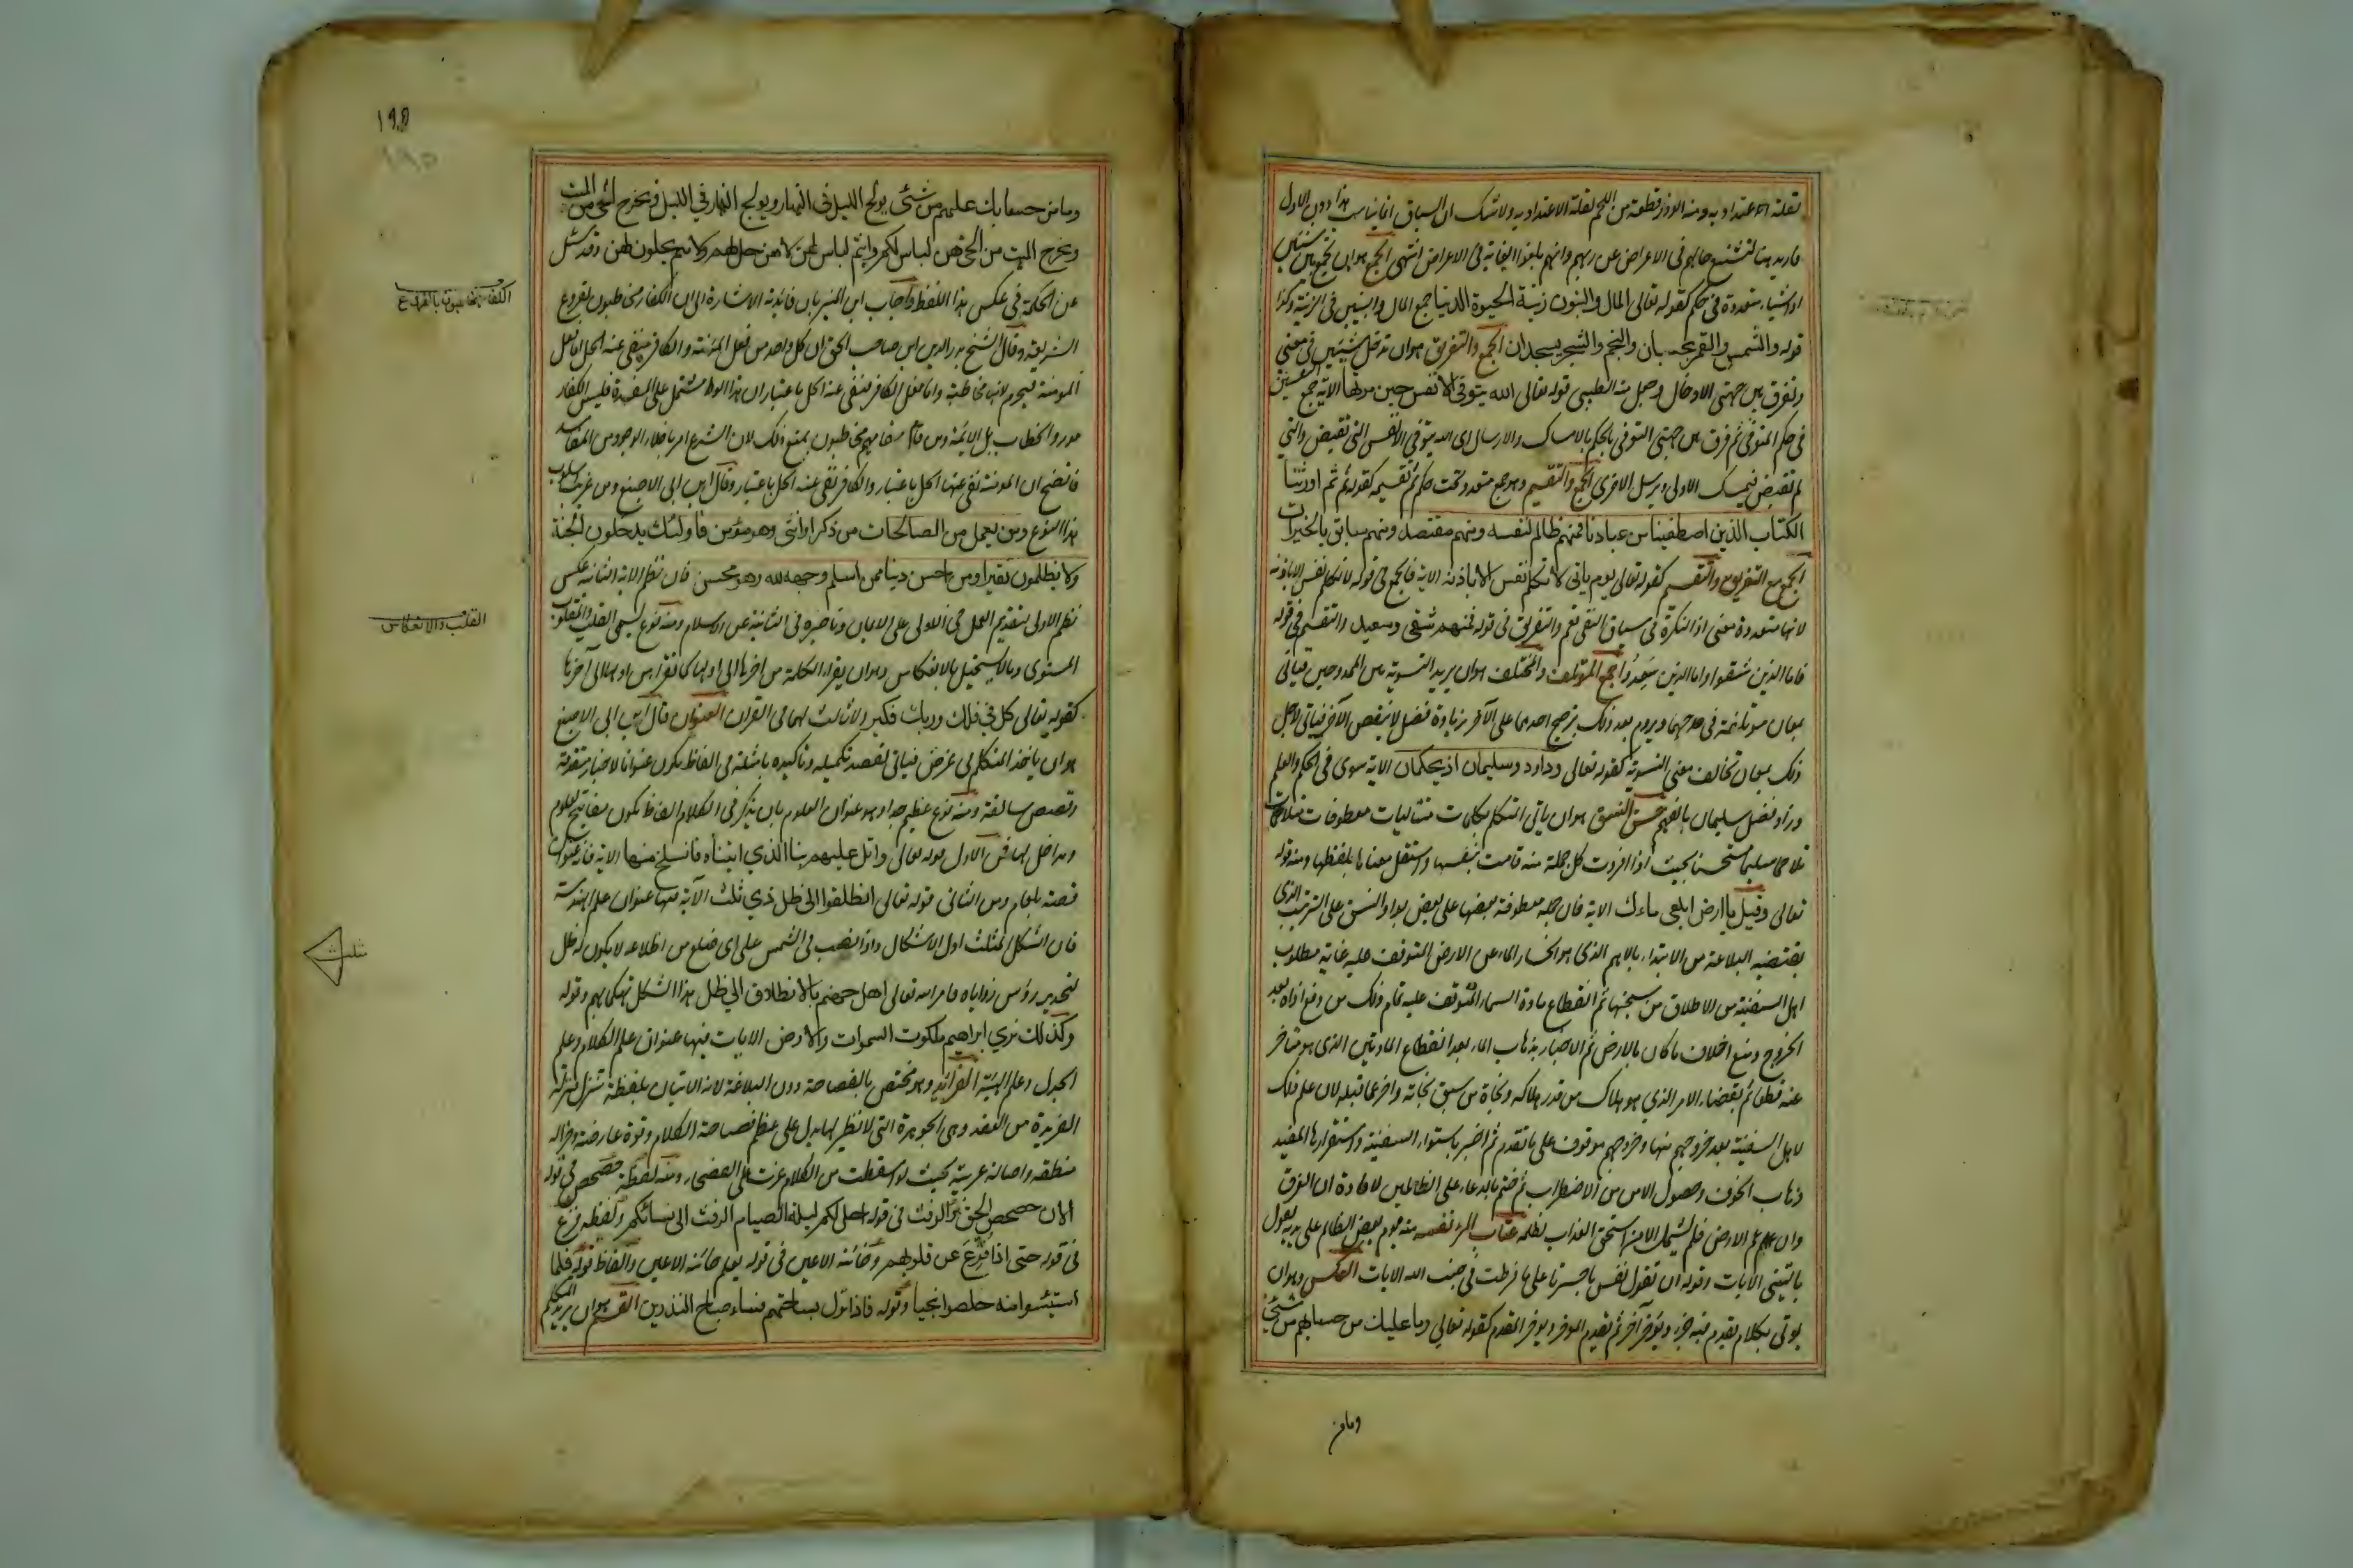 لقلة الاعتداد به ومنه الوذر قطعة من اللحم لقلة الاعتداد به ولا شك ان السياق انما يناسب هذا دون الاول
فاريد هنا تشنيع حالهم في الاعراض عن ربهم وانهم بلغوا الغاية في الاعراض انتهى الجمع هو ان يجمع بين شيئين
او اشياء متعددة في حكم كقوله تعالى المال والبنون زينة الحيوة الدنيا جمع المال والبنين في الزينة وكذا
قوله والشمس والقمر بحسبان والنجم والشجر يسجدان الجمع والتفريق هو ان تدخل شيئين في معنى
وتفرق بين جهتي الادخال وجعل منه الطيبي قوله تعالى الله يتوفى الانفس حين موتها الاية جمع النفسين
في حكم التوفي ثم فرق بين جهتي التوفي بالحكم بالامساك والارسال اي الله يتوفى الانفس التي تقبض والتي
لم تقبض فيمسك الاولى ويرسل الاخرى الجمع والتقسيم وهو جمع متعدد تحت حكم ثم تقسيمه كقوله ثم اورثنا
الكتاب الذين اصطفينا من عبادنا فمنهم ظالم لنفسه ومنهم مقتصد ومنهم سابق بالخيرات
الجمع مع التفريق والتقسيم كقوله تعالى يوم ياتي لا تكلم نفس الا باذنه الاية فالجمع في قوله لا تكلم نفس الا باذنه
لانها متعددة معنى اذ النكرة في سياق النفي تعم والتفريق في قوله فمنهم شقي وسعيد والتقسيم في قوله
فاما الذين شقوا واما الذين سعدوا جمع المؤتلف والمختلف هو ان يريد التسوية بين الممدوحين فياتي
بمعان مؤتلفة في مدحهما ويروم بعد ذلك ترجيح احدهما على الآخر بزيادة فضل لا ينقص الآخر فياتي لاجل
ذلك بمعان تخالف معنى التسوية كقوله تعالى وداود وسليمان اذ يحكمان الاية سوى في الحكم والعلم
وزاد فضل سليمان بالفهم حسن النسق هو ان ياتي المتكلم بكلمات متتاليات معطوفات متلاحمات
تلاحما سليما مستحسنا بحيث اذا افردت كل جملة منه قامت بنفسها واستقل معناها بلفظها ومنه قوله
تعالى وقيل يا ارض ابلعي ماءك الاية فان جمله معطوفة بعضها على بعض بواو النسق على الترتيب الذي
يقتضيه البلاغة من الابتداء بالاهم الذي هو انحسار الماء عن الارض المتوقف عليه غاية مطلوب
اهل السفينة من الاطلاق من سجنها ثم انقطاع مادة السماء المتوقف عليه تمام ذلك من دفع اذاه بعد
الخروج ومنع اخلاف ما كان بالارض ثم الاخبار بذهاب الماء بعد انقطاع المادتين الذي هو متاخر
عنه قطعا ثم بقضاء الامر الذي هو هلاك من قدر هلاكه ونجاة من سبق نجاته واخر عما قبله لان علم ذلك
لاهل السفينة بعد خروجهم منها وخروجهم موقوف على ما تقدم ثم اخبر باستواء السفينة واستقرارها المفيد
ذهاب الخوف وحصول الامن من الاضطراب ثم ختم بالدعاء على الظالمين لافادة ان الغرق
وان عم الارض فلم يشمل الا من استحق العذاب لظلمه عتاب المرء نفسه منه يوم يعض الظالم على يديه يقول
يا ليتني الايات وقوله ان تقول نفس يا حسرتا على ما فرطت في جنب الله الايات العكس وهو ان
يؤتى بكلام يقدم فيه جزء ويؤخر آخر ثم يقدم المؤخر ويؤخر المقدم كقوله تعالى وما عليك من حسابهم من شئ
وما من
١٩٥
١٨٥
وما من حسابك عليهم من شئ يولج الليل في النهار ويولج النهار في الليل ويخرج الحي من الميت
ويخرج الميت من الحي هن لباس لكم وانتم لباس لهن لا هن حل لهم ولا هم يحلون لهن وقد سئل
عن الحكمة في عكس هذا اللفظ واجاب ابن المنير بان فائدته الاشارة الى ان الكفار مخاطبون بفروع
الشريعة وقال الشيخ بدر الدين ابن الصاحب الحق ان كل واحد من فعل المؤمنة والكافر منفي عنه الحل اما فعل
المؤمنة فيحرم لانها مخاطبة واما فعل الكافر فنفي عنه الحل باعتبار ان هذا الوطء مشتمل على المفسدة فليس الكفار
مورد الخطاب بل الائمة ومن قام مقامهم مخاطبون بمنع ذلك لان الشرع امر باخلاء الوجود من المفاسد
فاتضح ان المؤمنة نفي عنها الحل باعتبار والكافر نفي عنه الحل باعتبار وقال ابن ابي الاصبع ومن غريب اسلوب
هذا النوع ومن يعمل من الصالحات من ذكر او انثى وهو مؤمن فاولئك يدخلون الجنة
ولا يظلمون نقيرا ومن احسن دينا ممن اسلم وجهه لله وهو محسن فان نظم الاية الثانية عكس
نظم الاولى بتقديم العمل في الاولى على الايمان وتاخيره في الثانية عن الاسلام ومنه نوع يسمى القلب والمقلوب
المستوى وما لا يستحيل بالانعكاس وهو ان يقرا الكلمة من اخرها الى اولها كما تقرا من اولها الى آخرها
كقوله تعالى كل في فلك وربك فكبر ولا ثالث لهما في القران العنوان قال ابن ابي الاصبع
هو ان ياخذ المتكلم في غرض فياتي لقصد تكميله وتاكيده بامثلة في الفاظ تكون عنوانا لاخبار متقدمة
وقصص سالفة ومنه نوع عظيم جدا وهو عنوان العلوم بان يذكر في الكلام الفاظ تكون مفاتيح لعلوم
ومداخل لها فمن الاول قوله تعالى واتل عليهم نبا الذي اتيناه فانسلخ منها الاية فانه عنوان
قصة بلعام ومن الثاني قوله تعالى انطلقوا الى ظل ذي ثلث الآية فيها عنوان علم الهندسة
فان الشكل المثلث اول الاشكال واذا نصب في الشمس على اي ضلع من اضلاعه لا يكون له ظل
لتحديد رؤس زواياه فامر الله تعالى اهل جهنم بالانطلاق الى ظل هذا الشكل تهكما بهم وقوله
وكذلك نري ابراهيم ملكوت السموات والارض الايات فيها عنوان علم الكلام وعلم
الجدل وعلم الهيئة الفرائد وهو مختص بالفصاحة دون البلاغة لانه الاتيان بلفظة تنزل منزلة
الفريدة من العقد وهي الجوهرة التي لا نظير لها يدل على عظم فصاحة الكلام وقوة عارضته وجزالة
منطقه واصالة عربيته بحيث لو اسقطت من الكلام عزت على الفصحاء ومنه لفظة حصحص في قوله
الان حصحص الحق والرفث في قوله احل لكم ليلة الصيام الرفث الى نسائكم ولفظة فزع
في قوله حتى اذا فزع عن قلوبهم وخائنة الاعين في قوله يعلم خائنة الاعين والفاظ قوله فلما
استيئسوا منه خلصوا نجيا وقوله فاذا نزل بساحتهم فساء صباح المنذرين القسم هو ان يريد المتكلم
الكفار مخاطبون بالفروع
القلب والانعكاس
مثلث